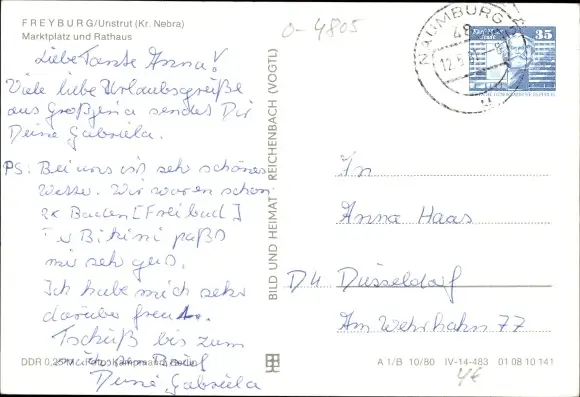 FREYBURG/Unstrut (Kr. Nebra)
Marktplatz und Rathaus
0-4805
Liebe Tante Anna!
Viele liebe Urlaubsgrüße
aus Großjena sendet Dir
Deine Gabriela.
PS: Bei uns ist sehr schönes
Wetter. Wir waren schon
2x Baden [Freibad]
Der Bikini paßt
mir sehr gut.
Ich habe mich sehr
darüber gefreut.
Tschüß bis zum
nächsten Brief
Deine Gabriela
DDR 0,25M
BILD UND HEIMAT REICHENBACH (VOGTL)
NAUMBURG
48
12.6.
35
In
Anna Haas
D4 Düsseldorf
Am Wehrhahn 77
A 1/B 10/80 IV-14-483 01 08 10 141
4€